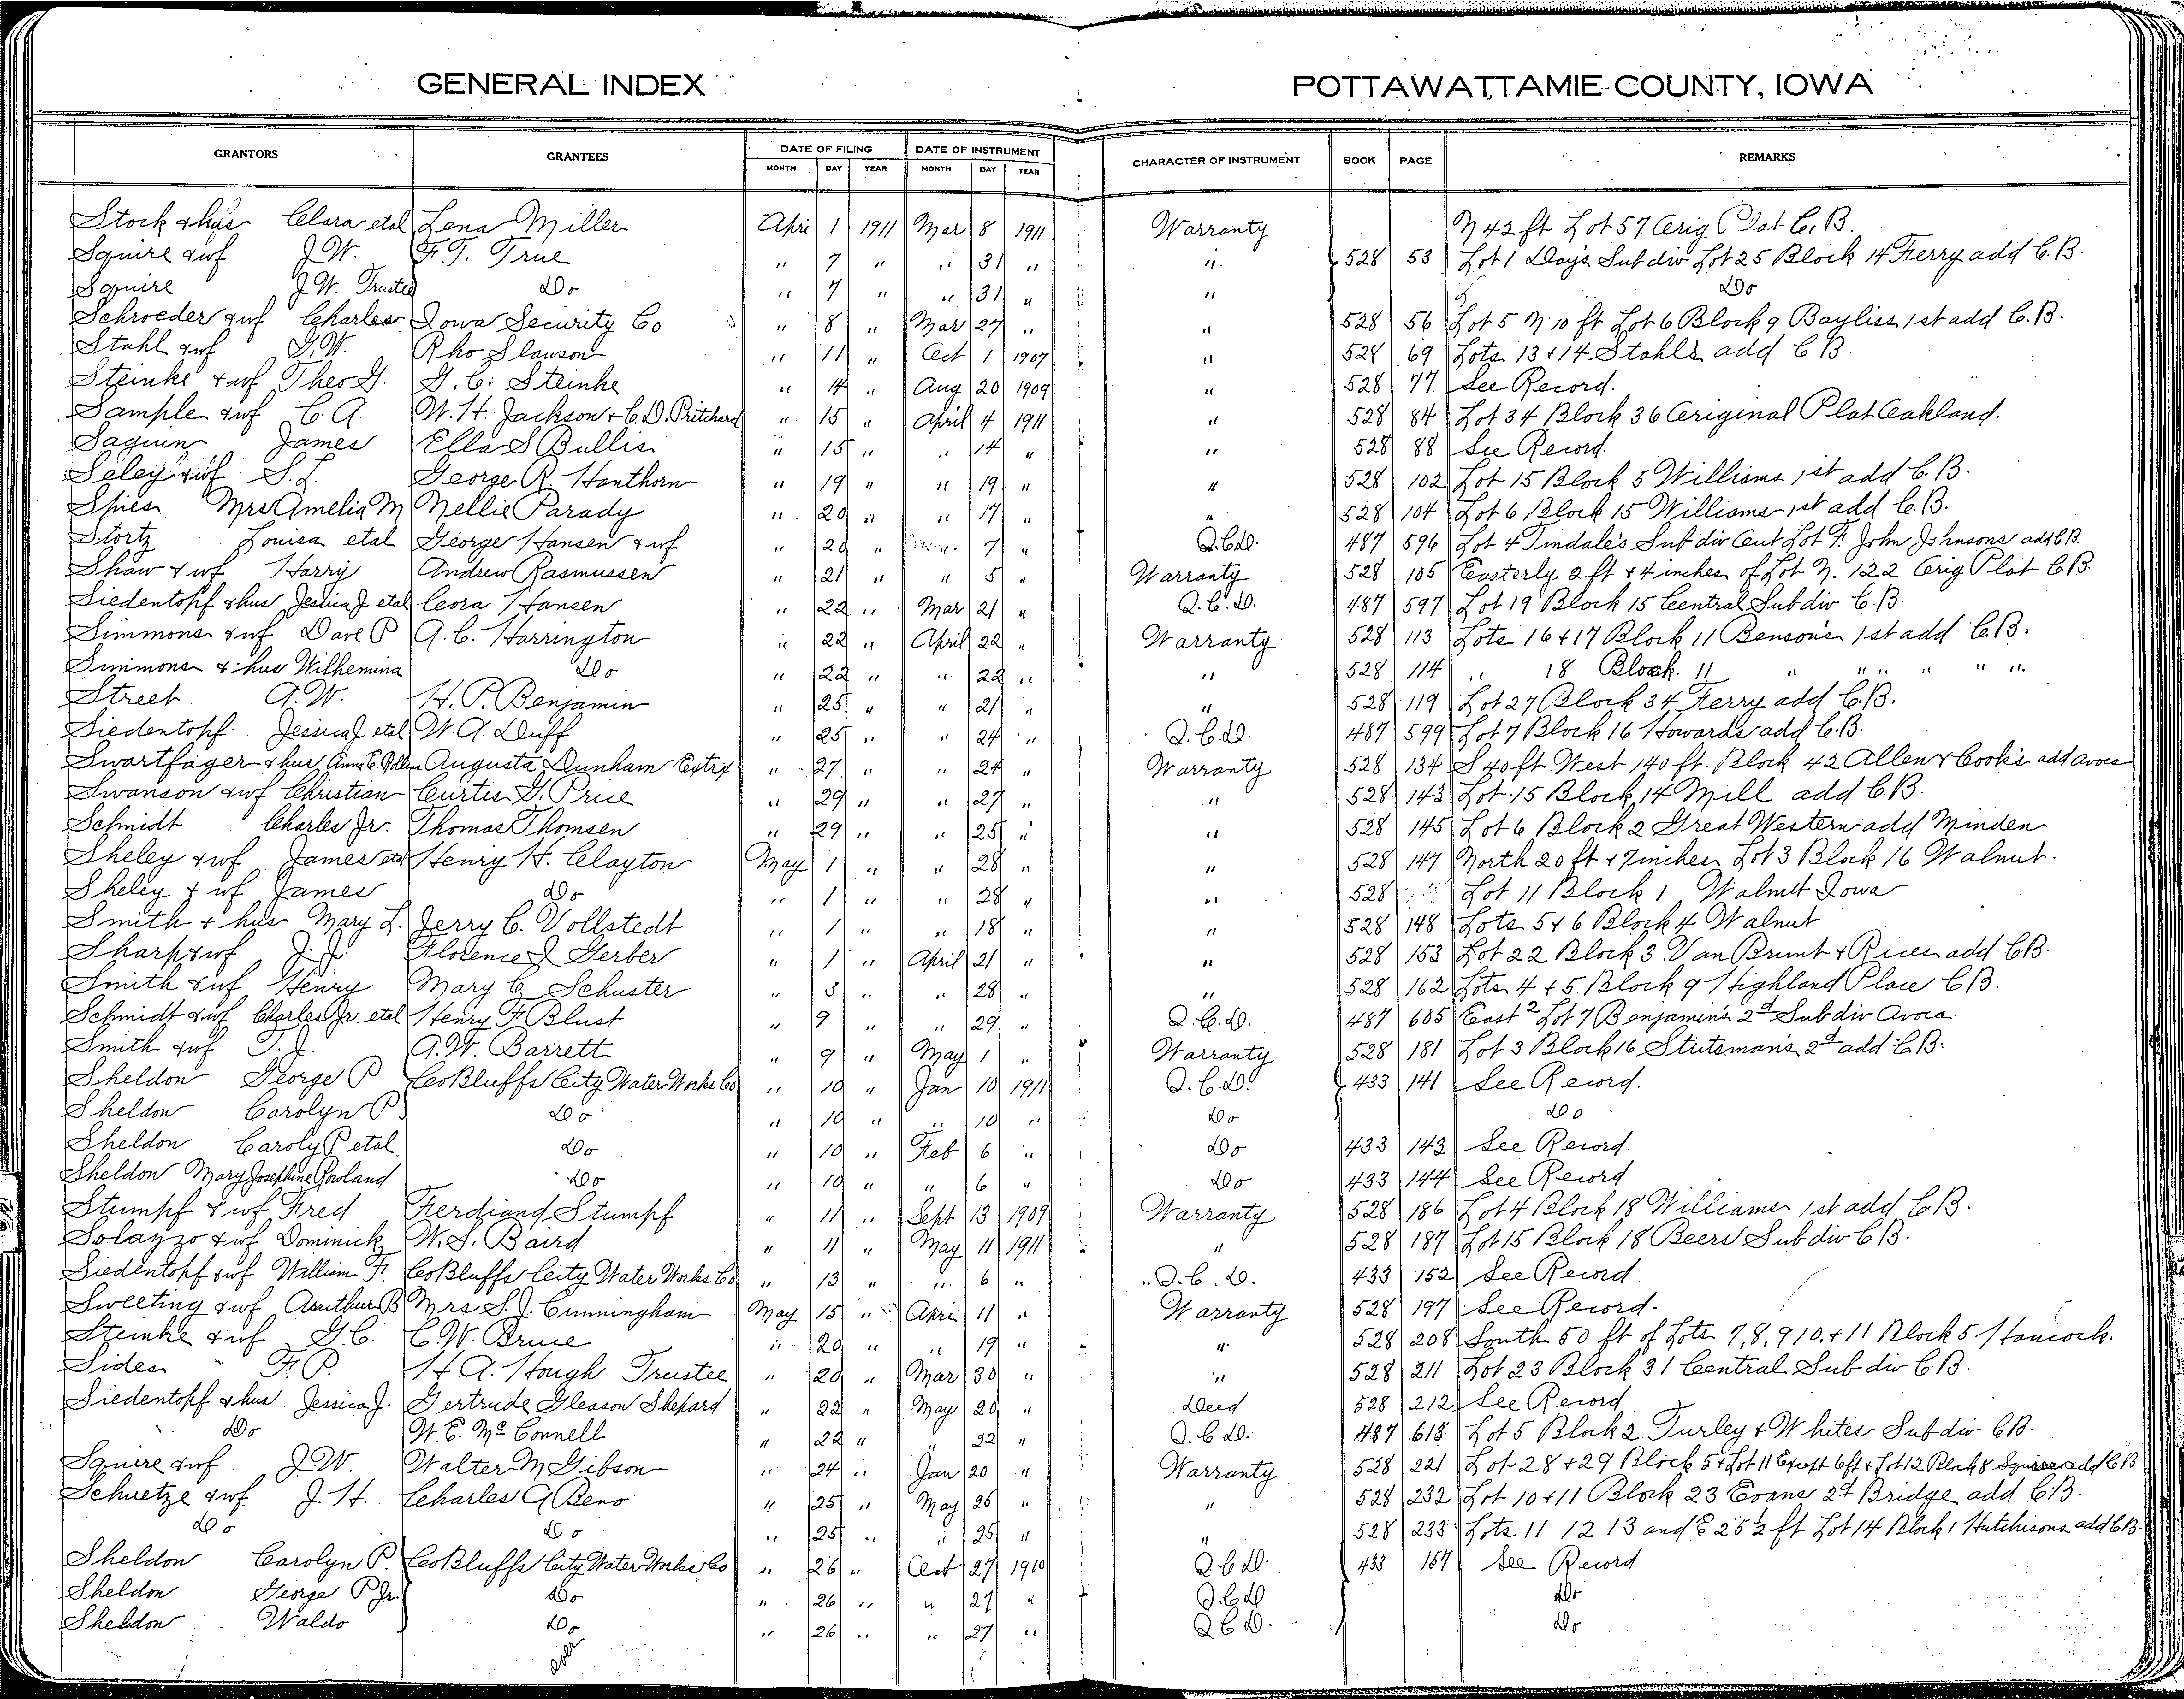 GENERAL INDEX POTTAWATTAMIE COUNTY, IOWA
GRANTORS GRANTEES DATE OF FILING DATE OF INSTRUMENT CHARACTER OF INSTRUMENT BOOK PAGE REMARKS
MONTH DAY YEAR MONTH DAY YEAR
Stock & hus Clara etal Lena Miller Apri 1 1911 Mar 8 1911 Warranty N 42 ft Lot 57 Orig Plat C.B.
Squire & wf J.W. F.T. True " 7 " " 31 " " 528 53 Lot 1 Days Sub div Lot 25 Block 14 Ferry add C.B.
Squire J.W. Trustee Do " 7 " " 31 " " Do
Schroeder & wf Charles Iowa Security Co " 8 " Mar 27 " " 528 56 Lot 5 N 10 ft Lot 6 Block 9 Bayliss 1st add C.B.
Stahl & wf G.W. Rho Slawson " 11 " Oct 1 1907 " 528 69 Lots 13 & 14 Stahls add C B.
Steinke & wf Theo G. G.C. Steinke " 14 " Aug 20 1909 " 528 77 See Record.
Sample & wf C.A. W.H. Jackson & C.D. Pritchard " 15 " April 4 1911 " 528 84 Lot 34 Block 36 Original Plat Oakland.
Saguin James Ella S Bullis " 15 " " 14 " " 528 88 See Record.
Seley & wf S.L. George R. Hanthorn " 19 " " 19 " " 528 102 Lot 15 Block 5 Williams 1st add C.B.
Spies Mrs Amelia M Nellie Parady " 20 " " 17 " " 528 104 Lot 6 Block 15 Williams 1st add C.B.
Stortz Louisa etal George Hansen & wf " 20 " 7 " Q.C.D. 487 596 Lot 4 Tindale's Sub div Out Lot F. John Johnsons add C.B.
Shaw & wf Harry Andrew Rasmussen " 21 " " 5 " Warranty 528 105 Easterly 2 ft & 4 inches of Lot N. 122 Orig Plat C.B.
Siedentopf & hus Jessica J etal Ceora Hansen " 22 " Mar 21 " Q.C.D. 487 597 Lot 19 Block 15 Central Sub div C.B.
Simmons & wf Dave P A.C. Harrington " 22 " April 22 " Warranty 528 113 Lots 16 & 17 Block 11 Benson's 1st add C.B.
Simmons & hus Wilhemina Do " 22 " " 22 " " 528 114 " 18 Block 11 " " " " " "
Street A.W. H.P. Benjamin " 25 " " 21 " " 528 119 Lot 27 Block 34 Ferry add C.B.
Siedentopf Jessica J etal W.A. Duff " 25 " " 24 " Q.C.D. 487 599 Lot 7 Block 16 Howards add C.B.
Swartfager & hus Anna E. Augusta Dunham Extrx " 27 " " 24 " Warranty 528 134 S 40 ft West 140 ft. Block 42 Allen & Cook's add Avoca
Swanson & wf Christian Curtis G. Price " 29 " " 27 " " 528 143 Lot 15 Block 14 Mill add C.B.
Schmidt Charles Jr. Thomas Thomsen " 29 " " 25 " " 528 145 Lot 6 Block 2 Great Western add Minden
Sheley & wf James etal Henry H. Clayton May 1 " " 28 " " 528 147 North 20 ft & 7 inches Lot 3 Block 16 Walnut.
Sheley & wf James Do " 1 " " 28 " " 528 " Lot 11 Block 1 Walnut Iowa
Smith & hus Mary L. Jerry C. Vollstedt " 1 " " 18 " " 528 148 Lots 5 & 6 Block 4 Walnut
Sharp & wf J.J. Florence J Gerber " 1 " April 21 " " 528 153 Lot 22 Block 3 Van Brunt & Rices add C.B.
Smith & wf Henry Mary C. Schuster " 3 " " 28 " " 528 162 Lots 4 & 5 Block 9 Highland Place C.B.
Schmidt & wf Charles Jr. etal Henry F Blust " 9 " " 29 " Q.C.D. 487 605 East 2 Lot 7 Benjamin's 2d Sub div Avoca.
Smith & wf T.J. A.W. Barrett " 9 " May 1 " Warranty 528 181 Lot 3 Block 16 Stutsman's 2d add C.B.
Sheldon George P Co Bluffs City Water Works Co " 10 " Jan 10 1911 Q.C.D. 433 141 See Record.
Sheldon Carolyn P. Do " 10 " " 10 " Do Do
Sheldon Caroly P etal. Do " 10 " Feb 6 " Do 433 143 See Record.
Sheldon Mary Josephine Rowland Do " 10 " " 6 " Do 433 144 See Record
Stumpf & wf Fred Ferdinand Stumpf " 11 " Sept 13 1909 Warranty 528 186 Lot 4 Block 18 Williams 1st add C.B.
Solazzo & wf Dominick W.S. Baird " 11 " May 11 1911 " 528 187 Lot 15 Block 18 Beers Sub div C.B.
Siedentopf & wf William F. Co Bluffs City Water Works Co " 13 " " 6 " Q.C.D. 433 152 See Record
Sweeting & wf Aurthur B Mrs S.J. Cunningham May 15 " Apri 11 " Warranty 528 197 See Record.
Steinke & wf G.C. C.W. Bruce " 20 " " 19 " " 528 208 South 50 ft of Lots 7, 8, 9 10, & 11 Block 5 Hancock.
Sides F.P. H.A. Hough Trustee " 20 " Mar 30 " " 528 211 Lot 23 Block 31 Central Sub div C.B.
Siedentopf & hus Jessica J. Gertrude Gleason Shepard " 22 " May 20 " Deed 528 212 See Record
Do W.E. McConnell " 22 " " 22 " Q.C.D. 487 613 Lot 5 Block 2 Turley & Whites Sub div C.B.
Squire & wf J.W. Walter M Gibson " 24 " Jan 20 " Warranty 528 221 Lot 28 & 29 Block 5 & Lot 11 Except 6 ft & Lot 12 Block 8 Squires add C B
Schuetze & wf J.H. Charles A Beno " 25 " May 25 " " 528 232 Lot 10 & 11 Block 23 Evans 2d Bridge add C.B.
Do Do " 25 " " 25 " " 528 233 Lots 11 12 13 and E 25½ ft Lot 14 Block 1 Hutchisons add C.B.
Sheldon Carolyn P. Co Bluffs City Water Works Co " 26 " Oct 27 1910 Q C D. 433 157 See Record
Sheldon George P Jr. Do " 26 " " 27 " Q.C.D Do
Sheldon Waldo Do " 26 " " 27 " Q C D. Do
over